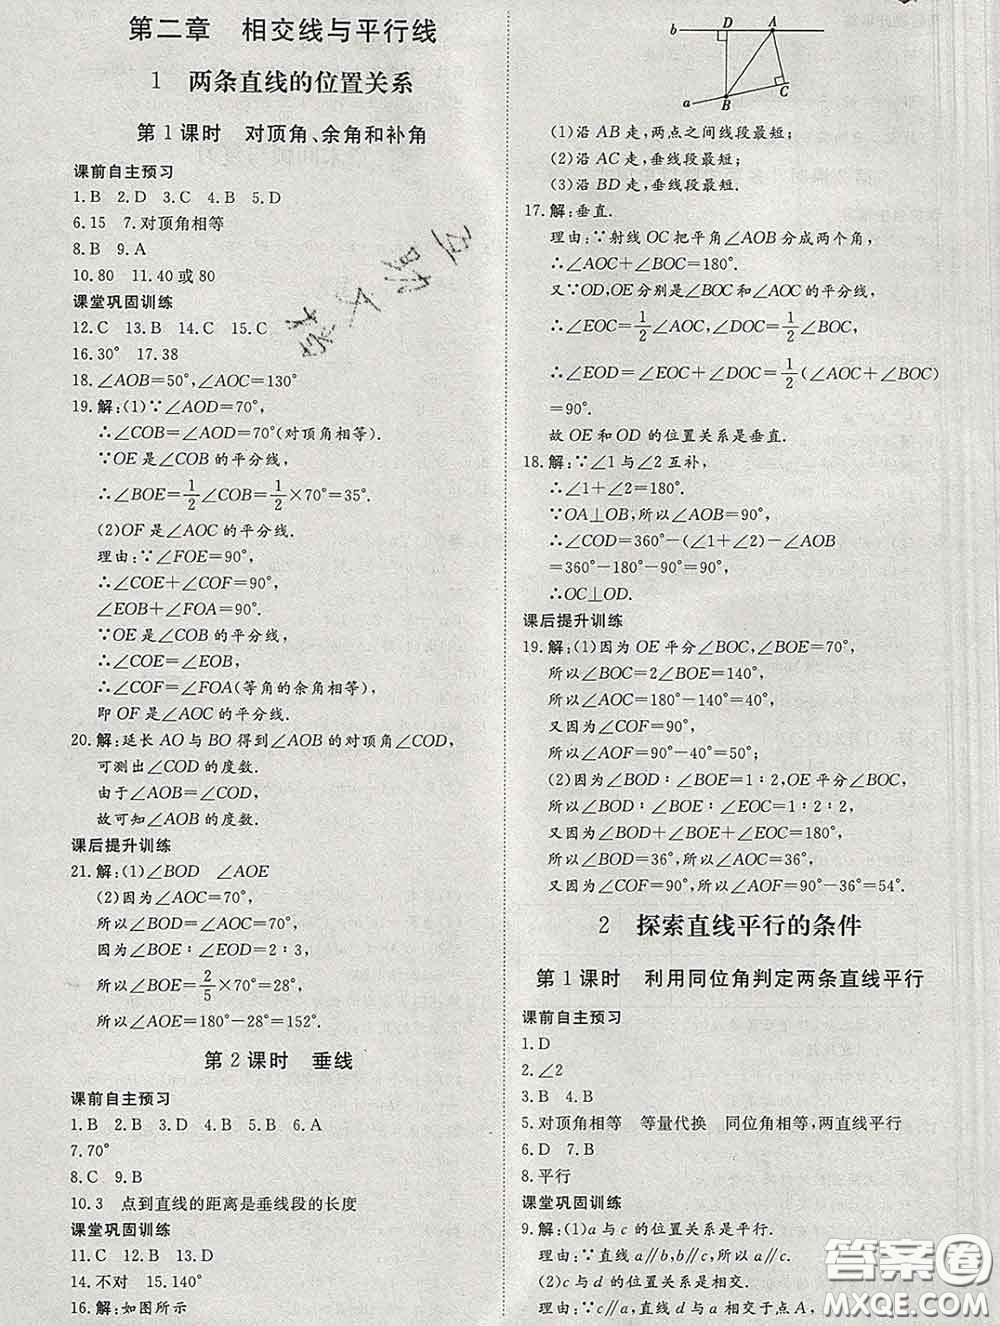 第二章 相交线与平行线
1 两条直线的位置关系
第1课时 对顶角、余角和补角
课前自主预习
1.B 2.D 3.C 4.B 5.D
6.15 7.对顶角相等
8.B 9.A
10.80 11.40或80
课堂巩固训练
12.C 13.B 14.C 15.C
16.30° 17.38
18.∠AOB=50°,∠AOC=130°
19.解:(1)∵∠AOD=70°,
∴∠COB=∠AOD=70°(对顶角相等).
∵OE是∠COB的平分线,
∴∠BOE=1/2∠COB=1/2×70°=35°.
(2)OF是∠AOC的平分线.
理由:∵∠FOE=90°,
∴∠COE+∠COF=90°,
∠EOB+∠FOA=90°.
∵OE是∠COB的平分线,
∴∠COE=∠EOB,
∴∠COF=∠FOA(等角的余角相等),
即OF是∠AOC的平分线.
20.解:延长AO与BO得到∠AOB的对顶角∠COD,
可测出∠COD的度数.
由于∠AOB=∠COD,
故可知∠AOB的度数.
课后提升训练
21.解:(1)∠BOD ∠AOE
(2)因为∠AOC=70°,
所以∠BOD=∠AOC=70°,
因为∠BOE∶∠EOD=2∶3,
所以∠BOE=2/5×70°=28°,
所以∠AOE=180°-28°=152°.
第2课时 垂线
课前自主预习
1.B 2.B 3.D 4.D 5.B 6.A
7.70°
8.C 9.B
10.3 点到直线的距离是垂线段的长度
课堂巩固训练
11.C 12.B 13.D
14.不对 15.140°
16.解:如图所示
b D A
a B C
(1)沿AB走,两点之间线段最短;
(2)沿AC走,垂线段最短;
(3)沿BD走,垂线段最短.
17.解:垂直.
理由:∵射线OC把平角∠AOB分成两个角,
∴∠AOC+∠BOC=180°.
又∵OD,OE分别是∠BOC和∠AOC的平分线,
∴∠EOC=1/2∠AOC,∠DOC=1/2∠BOC,
∴∠EOD=∠EOC+∠DOC=1/2(∠AOC+∠BOC)
=90°.
故OE和OD的位置关系是垂直.
18.解:∵∠1与∠2互补,
∴∠1+∠2=180°.
∵OA⊥OB,所以∠AOB=90°,
∴∠COD=360°-(∠1+∠2)-∠AOB
=360°-180°-90°=90°,
∴OC⊥OD.
课后提升训练
19.解:(1)因为OE平分∠BOC,∠BOE=70°,
所以∠BOC=2∠BOE=140°,
所以∠AOC=180°-140°=40°,
又因为∠COF=90°,
所以∠AOF=90°-40°=50°;
(2)因为∠BOD∶∠BOE=1∶2,OE平分∠BOC,
所以∠BOD∶∠BOE∶∠EOC=1∶2∶2,
又因为∠BOD+∠BOE+∠EOC=180°,
所以∠BOD=36°,所以∠AOC=36°,
又因为∠COF=90°,所以∠AOF=90°-36°=54°.
2 探索直线平行的条件
第1课时 利用同位角判定两条直线平行
课前自主预习
1.D
2.∠2
3.B 4.B
5.对顶角相等 等量代换 同位角相等,两直线平行
6.D 7.B
8.平行
课堂巩固训练
9.解:(1)a与c的位置关系是平行.
理由:∵直线a∥b,b∥c,所以a∥c.
(2)c与d的位置关系是相交.
理由:∵c∥a,直线d与a相交于点A,
答案圈
MXQE.COM